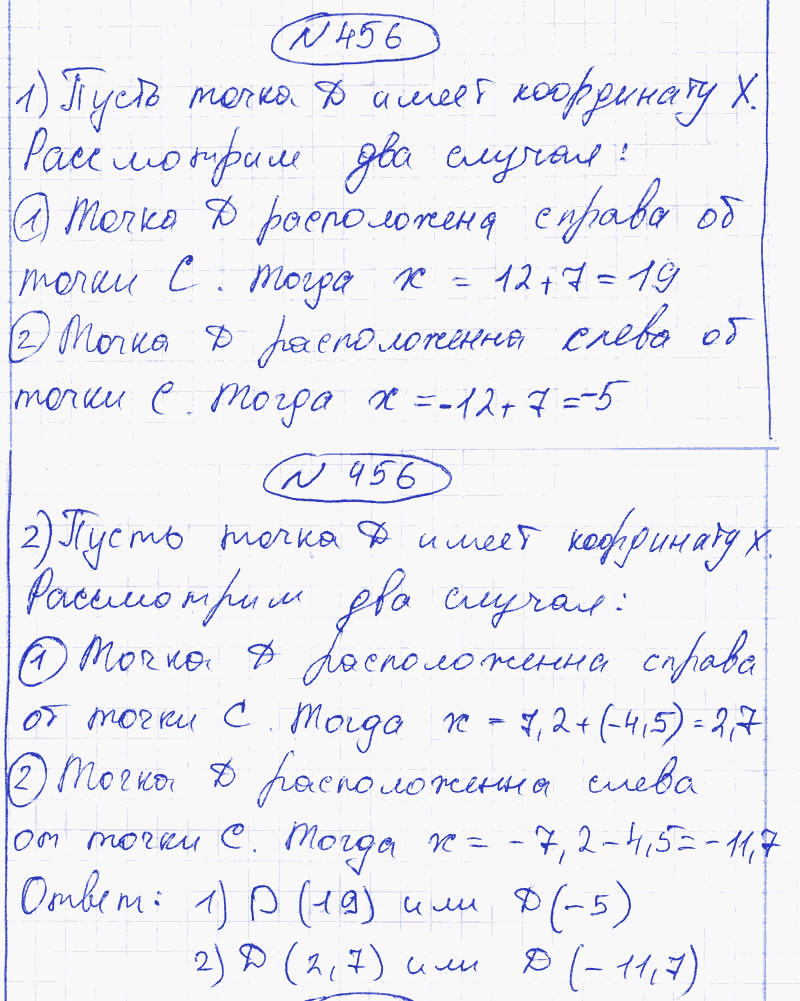 N 456
1) Пусть точка D имеет координату X.
Рассмотрим два случая:
1) Точка D расположена справа об
точки C. Тогда x = 12+7=19
2) Точка D расположенна слева об
точки C. Тогда x =-12+7=-5
N 456
2) Пусть точка D имеет координату X.
Рассмотрим два случая:
1) Точка D расположенна справа
от точки C. Тогда x = 7,2+(-4,5)=2,7
2) Точка D расположенна слева
от точки C. Тогда x = -7,2-4,5=-11,7
Ответ: 1) D (19) или D(-5)
2) D (2,7) или D (-11,7)